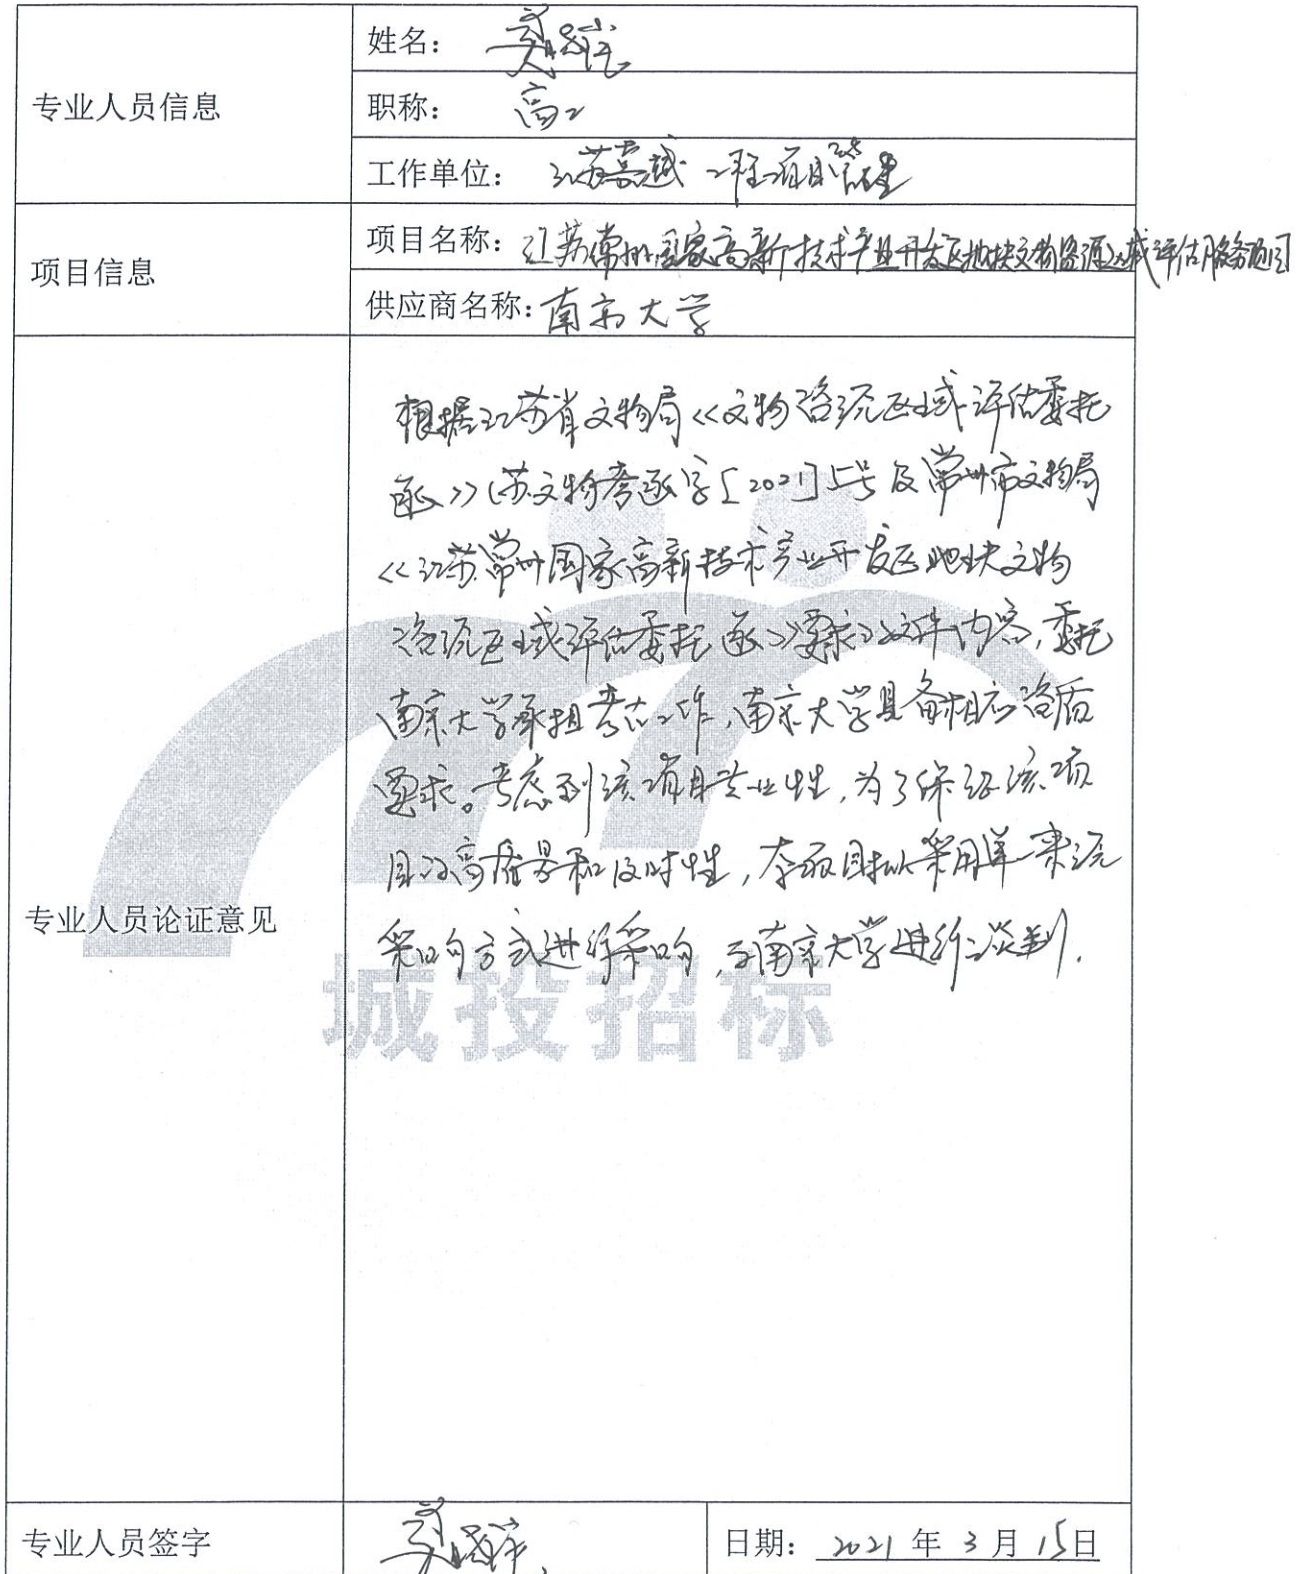 专业人员信息
姓名：
职称：高工
工作单位：江苏嘉越工程项目管理
项目信息
项目名称：江苏常州国家高新技术产业开发区地块文物资源区域评估服务项目
供应商名称：南京大学
根据江苏省文物局《文物资源区域评估委托
函》（苏文物考函字[2021]5号及常州市文物局
《江苏常州国家高新技术产业开发区地块文物
资源区域评估委托函》要求文件内容，委托
南京大学承担考古工作，南京大学具备相应资质
要求。考虑到该项目专业性，为了保证该项
目的高质量和及时性，本项目拟采用单一来源
采购方式进行采购，与南京大学进行谈判.
专业人员论证意见
城投招标
专业人员签字
日期：2021年3月15日